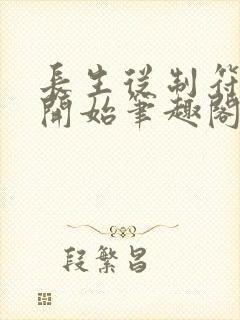 長生從制符
開始筆趣閣
段繁昌